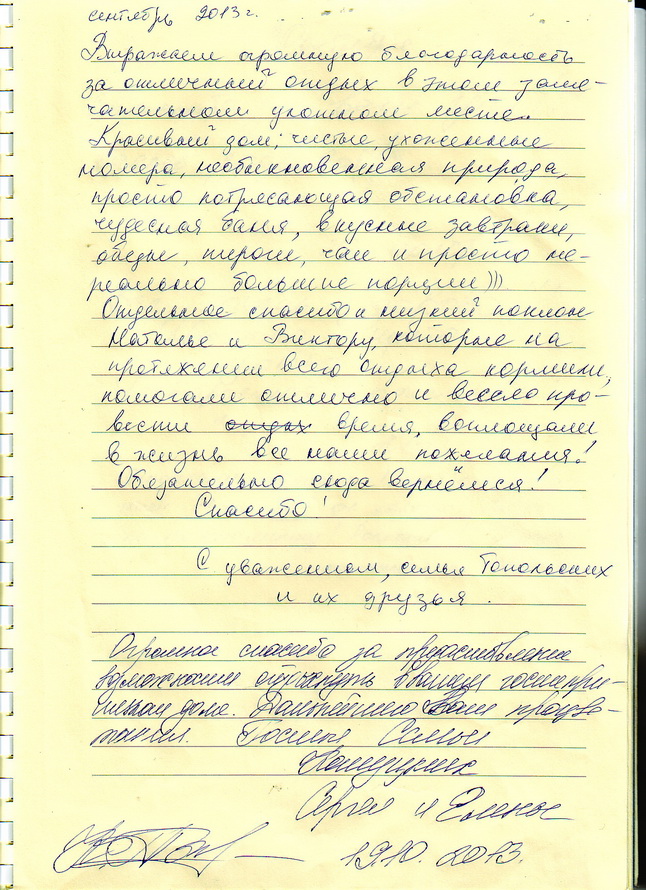 сентябрь 2013г.
Выражаем огромную благодарность
за отличный отдых в этом заме-
чательном уютном месте.
Красивый дом; чистые, ухоженные
номера, необыкновенная природа,
просто потрясающая обстановка,
чудесная баня, вкусные завтраки,
обеды, пироги, чаи и просто не-
реально большие порции )))
Отдельное спасибо и низкий поклон
Наталье и Виктору, которые на
протяжении всего отдыха кормили,
помогали отлично и весело про-
вести отдых время, воплощали
в жизнь все наши пожелания!
Обязательно сюда вернёмся!
Спасибо!
С уважением, семья Топольских
и их друзья.
Огромное спасибо за предоставление
возможности отдохнуть в вашем гостепри-
имном доме. Дальнейшего Вам процве-
тания. Гости Семьи
Сергея и Елены
19.10.2013.